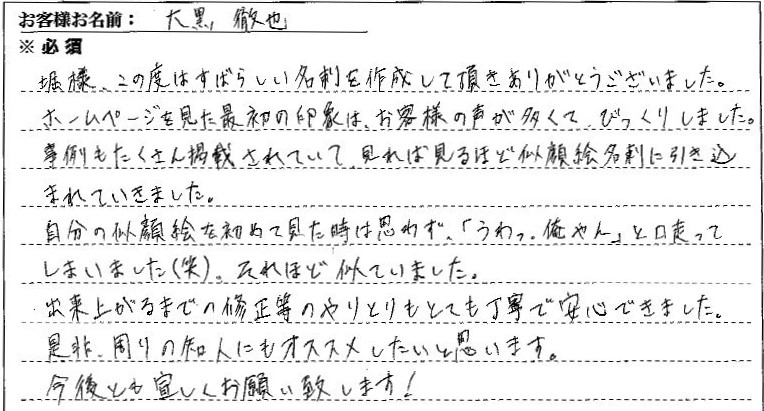 お客様お名前： 大黒 徹也
※必須
堀様、この度はすばらしい名刺を作成して頂きありがとうございました。
ホームページを見た最初の印象は、お客様の声が多くて、びっくりしました。
事例もたくさん掲載されていて、見れば見るほど似顔絵名刺に引き込
まれていきました。
自分の似顔絵を初めて見た時は思わず、「うわっ、俺やん」と口走って
しまいました(笑)。それほど似ていました。
出来上がるまでの修正等のやりとりもとても丁寧で安心できました。
是非、周りの知人にもオススメしたいと思います。
今後とも宜しくお願い致します！